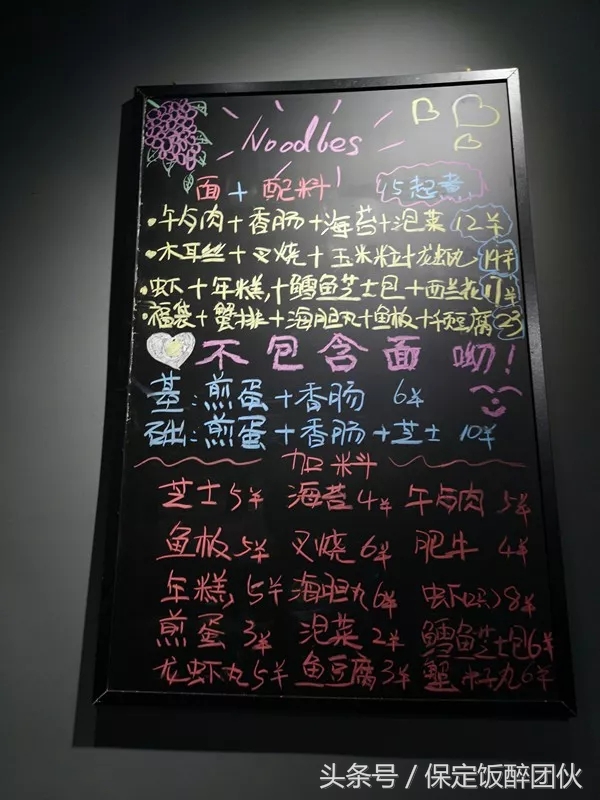 Noodles
面+配料
15起煮
·午歺肉+香肠+海苔+泡菜 12¥
·木耳丝+叉烧+玉米粒+龙虾丸 14¥
·虾+年糕+鳕鱼芝士包+西兰花 17¥
·福袋+蟹排+海胆丸+鱼板+千页豆腐 23
不包含面 呦!
基:煎蛋+香肠 6¥
础:煎蛋+香肠+芝士 10¥
加料
芝士5¥ 海苔4¥ 午歺肉 5¥
鱼板5¥ 叉烧6¥ 肥牛 4¥
年糕5¥ 海胆丸6¥ 虾 8¥
煎蛋3¥ 泡菜2¥ 鳕鱼芝士包6¥
龙虾丸5¥ 鱼豆腐3¥ 蟹籽丸6¥
头条号 / 保定饭醉团伙